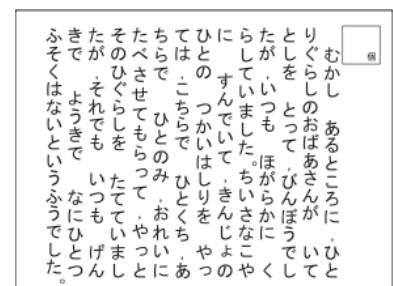 個
むかし　あるところに,ひと
りぐらしのおばあさんが　いて
としを　とって,びんぼうでし
たが,いつも　ほがらかに　く
らしていました。ちいさなこや
に　すんでいて,きんじょの
ひとの　つかいはしりを　やっ
ては,こちらで　ひとくち,あ
ちらで　ひとのみ,おれいに
たべさせてもらって,やっと
そのひぐらしを　たてていまし
たが,それでも　いつも　げん
きで　ようきで　なにひとつ
ふそくはないというふうでした。